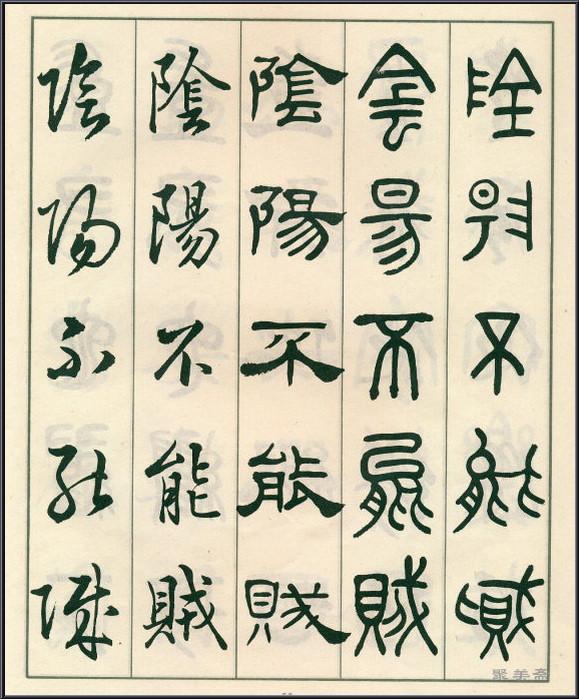 陰陽不能賊
陰陽不能賊
陰陽不能賊
陰陽不能賊
陰陽不能賊
聚美斋